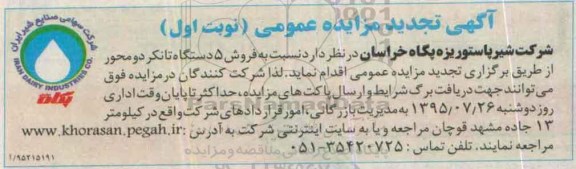 آگهی تجدید مزایده عمومی (نوبت اول)
شرکت شیر پاستوریزه پگاه خراسان در نظر دارد نسبت به فروش ۵ دستگاه تانکر دو محور
از طریق برگزاری تجدید مزایده عمومی اقدام نماید. لذا شرکت کنندگان در مزایده فوق
می‌توانند جهت دریافت برگ شرایط و ارسال پاکت های مزایده، حداکثر تا پایان وقت اداری
روز دوشنبه ۱۳۹۵/۰۷/۲۶ به مدیریت بازرگانی، امور قراردادهای شرکت واقع در کیلومتر
۱۳ جاده مشهد قوچان مراجعه و یا به سایت اینترنتی شرکت به آدرس: www.khorasan.pegah.ir
مراجعه نمایند. تلفن تماس : ۳۵۴۲۰۷۲۵-۰۵۱
شرکت سهامی صنایع شیر ایران
IRAN DAIRY INDUSTRIES CO.
پگاه
۲/۹۵۲۱۵۱۹۱